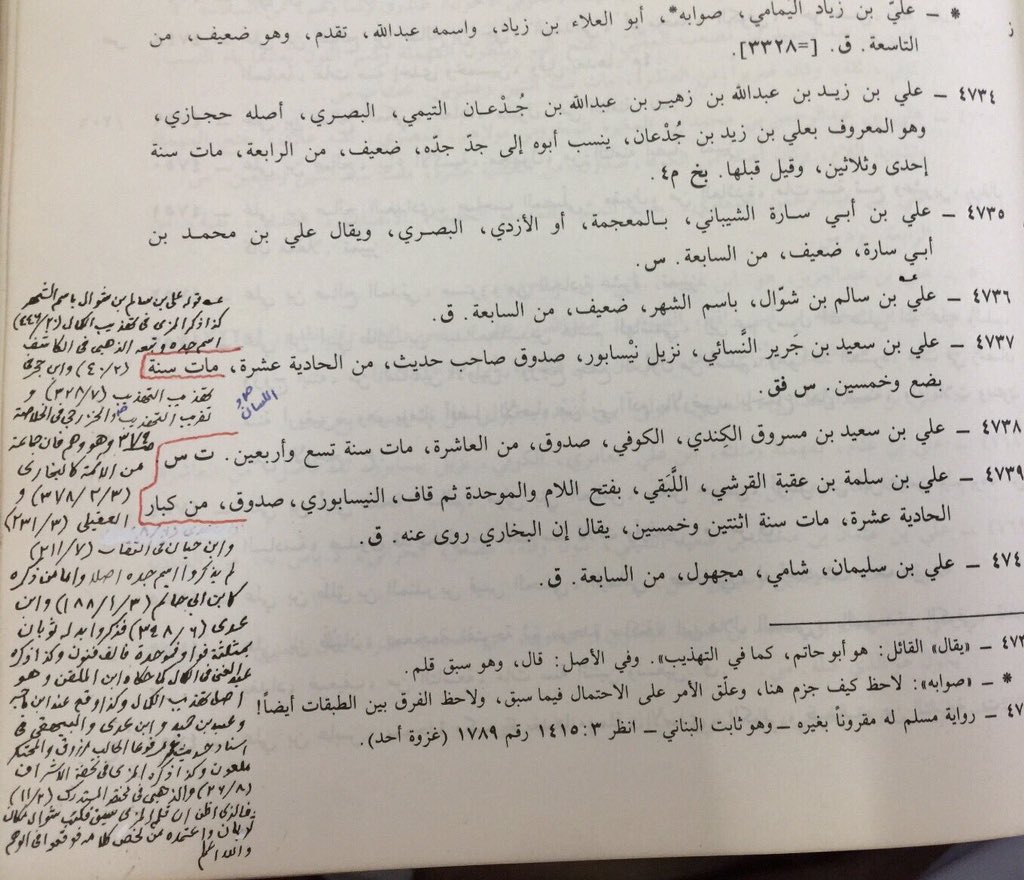 * ـ عليّ بن زياد اليمامي، صوابه*، أبو العلاء بن زياد، واسمه عبدالله، تقدم، وهو ضعيف، من
التاسعة. ق. [=٣٣٢٨].
٤٧٣٤ ـ علي بن زيـد بن عبدالله بن زهيـر بن عبدالله بن جُـدْعـان التيمي، البصـري، أصله حجـازي،
وهو المعروف بعلي بن زيد بن جُدْعان، ينسب أبوه إلى جدّ جدّه، ضعيف، من الرابعة، مات سنة
إحدى وثلاثين، وقيل قبلها. بخ م٤.
٤٧٣٥ ـ علي بن أبـي سـارة الشيباني، بـالمعجمة، أو الأزدي، البصـري، ويقال علي بن محمـد بن
أبـي سارة، ضعيف، من السابعة. س.
٤٧٣٦ ـ علي بن سالم بن شوّال، باسم الشهر، ضعيف، من السابعة. ق.
٤٧٣٧ ـ علي بن سعيد بن جرير النَّسائي، نزيل نيْسابور، صدوق صاحب حديث، من الحادية عشرة، مات سنة
بضع وخمسين. س فق.
٤٧٣٨ ـ علي بن سعيد بن مسروق الكِندي، الكوفي، صدوق، من العاشرة، مات سنة تسع وأربعين. ت س
٤٧٣٩ ـ علي بن سلمة بن عقبة القرشي، اللَّبَقي، بفتح اللام والموحدة ثم قاف، النيسابوري، صدوق، من كبار
الحادية عشرة، مات سنة اثنتين وخمسين، يقال إن البخاري روى عنه. ق.
٤٧٤ ـ علي بن سليمان، شامي، مجهول، من السابعة. ق.
٤٧٣ ـ «يقال» القائل: هو أبو حاتم، كما في التهذيب». وفي الأصل: قال، وهو سبق قلم.
* ـ «صوابه»: لاحظ كيف جزم هنا، وعلّق الأمر على الاحتمال فيما سبق، ولاحظ الفرق بين الطبقات أيضاً!
٤٧ ـ رواية مسلم له مقروناً بغيره ـ وهو ثابت البناني ـ انظر ٣: ١٤١٥ رقم ١٧٨٩ (غزوة أحد).
قوله علي بن سالم بن شوال باسم الشهر
كذا ذكر المزي في تهذيب الكمال (٤٤٦/٢)
اسم جده وتبعه الذهبي في الكاشف
(٤٠/٢) وابن حجر في
تهذيب التهذيب (٣٢٨/٧) و
تقريب التهذيب والخزرجي في الخلاصة
ص ٣٧٤ وهو وهم فإن جماعة
من الأئمة كالبخاري
(٣٧٨/٢/٣) و
العقيلي (٢٣١/٣)
وابن حبان في الثقات (٢١١/٧)
لم يذكروا اسم جده أصلا وأما من ذكره
كابن أبي حاتم (١٨٨/١/٣) وابن
عدي (٣٤٨/٦) فذكروا بدله ثوبان
بمثلثة فواو فموحدة فألف فنون وكذا ذكره
عبد الغني في الكمال كما حكاه ابن الملقن وهو
أصل تهذيب الكمال وكذا وقع عند ابن ماجه
وعبد بن حميد وابن عدي والبيهقي في
إسناد حديث مرفوعا الجالب مرزوق والمحتكر
ملعون وكذا ذكره المزي في تحفة الأشراف
(٢٦/٨) والذهبي في مختصر المستدرك (١١/٢)
فالذي أظن أن قلم المزي سبق فكتب شوال مكان
ثوبان واعتمده من لخص كلامه فوقعوا في الوهم
والله أعلم